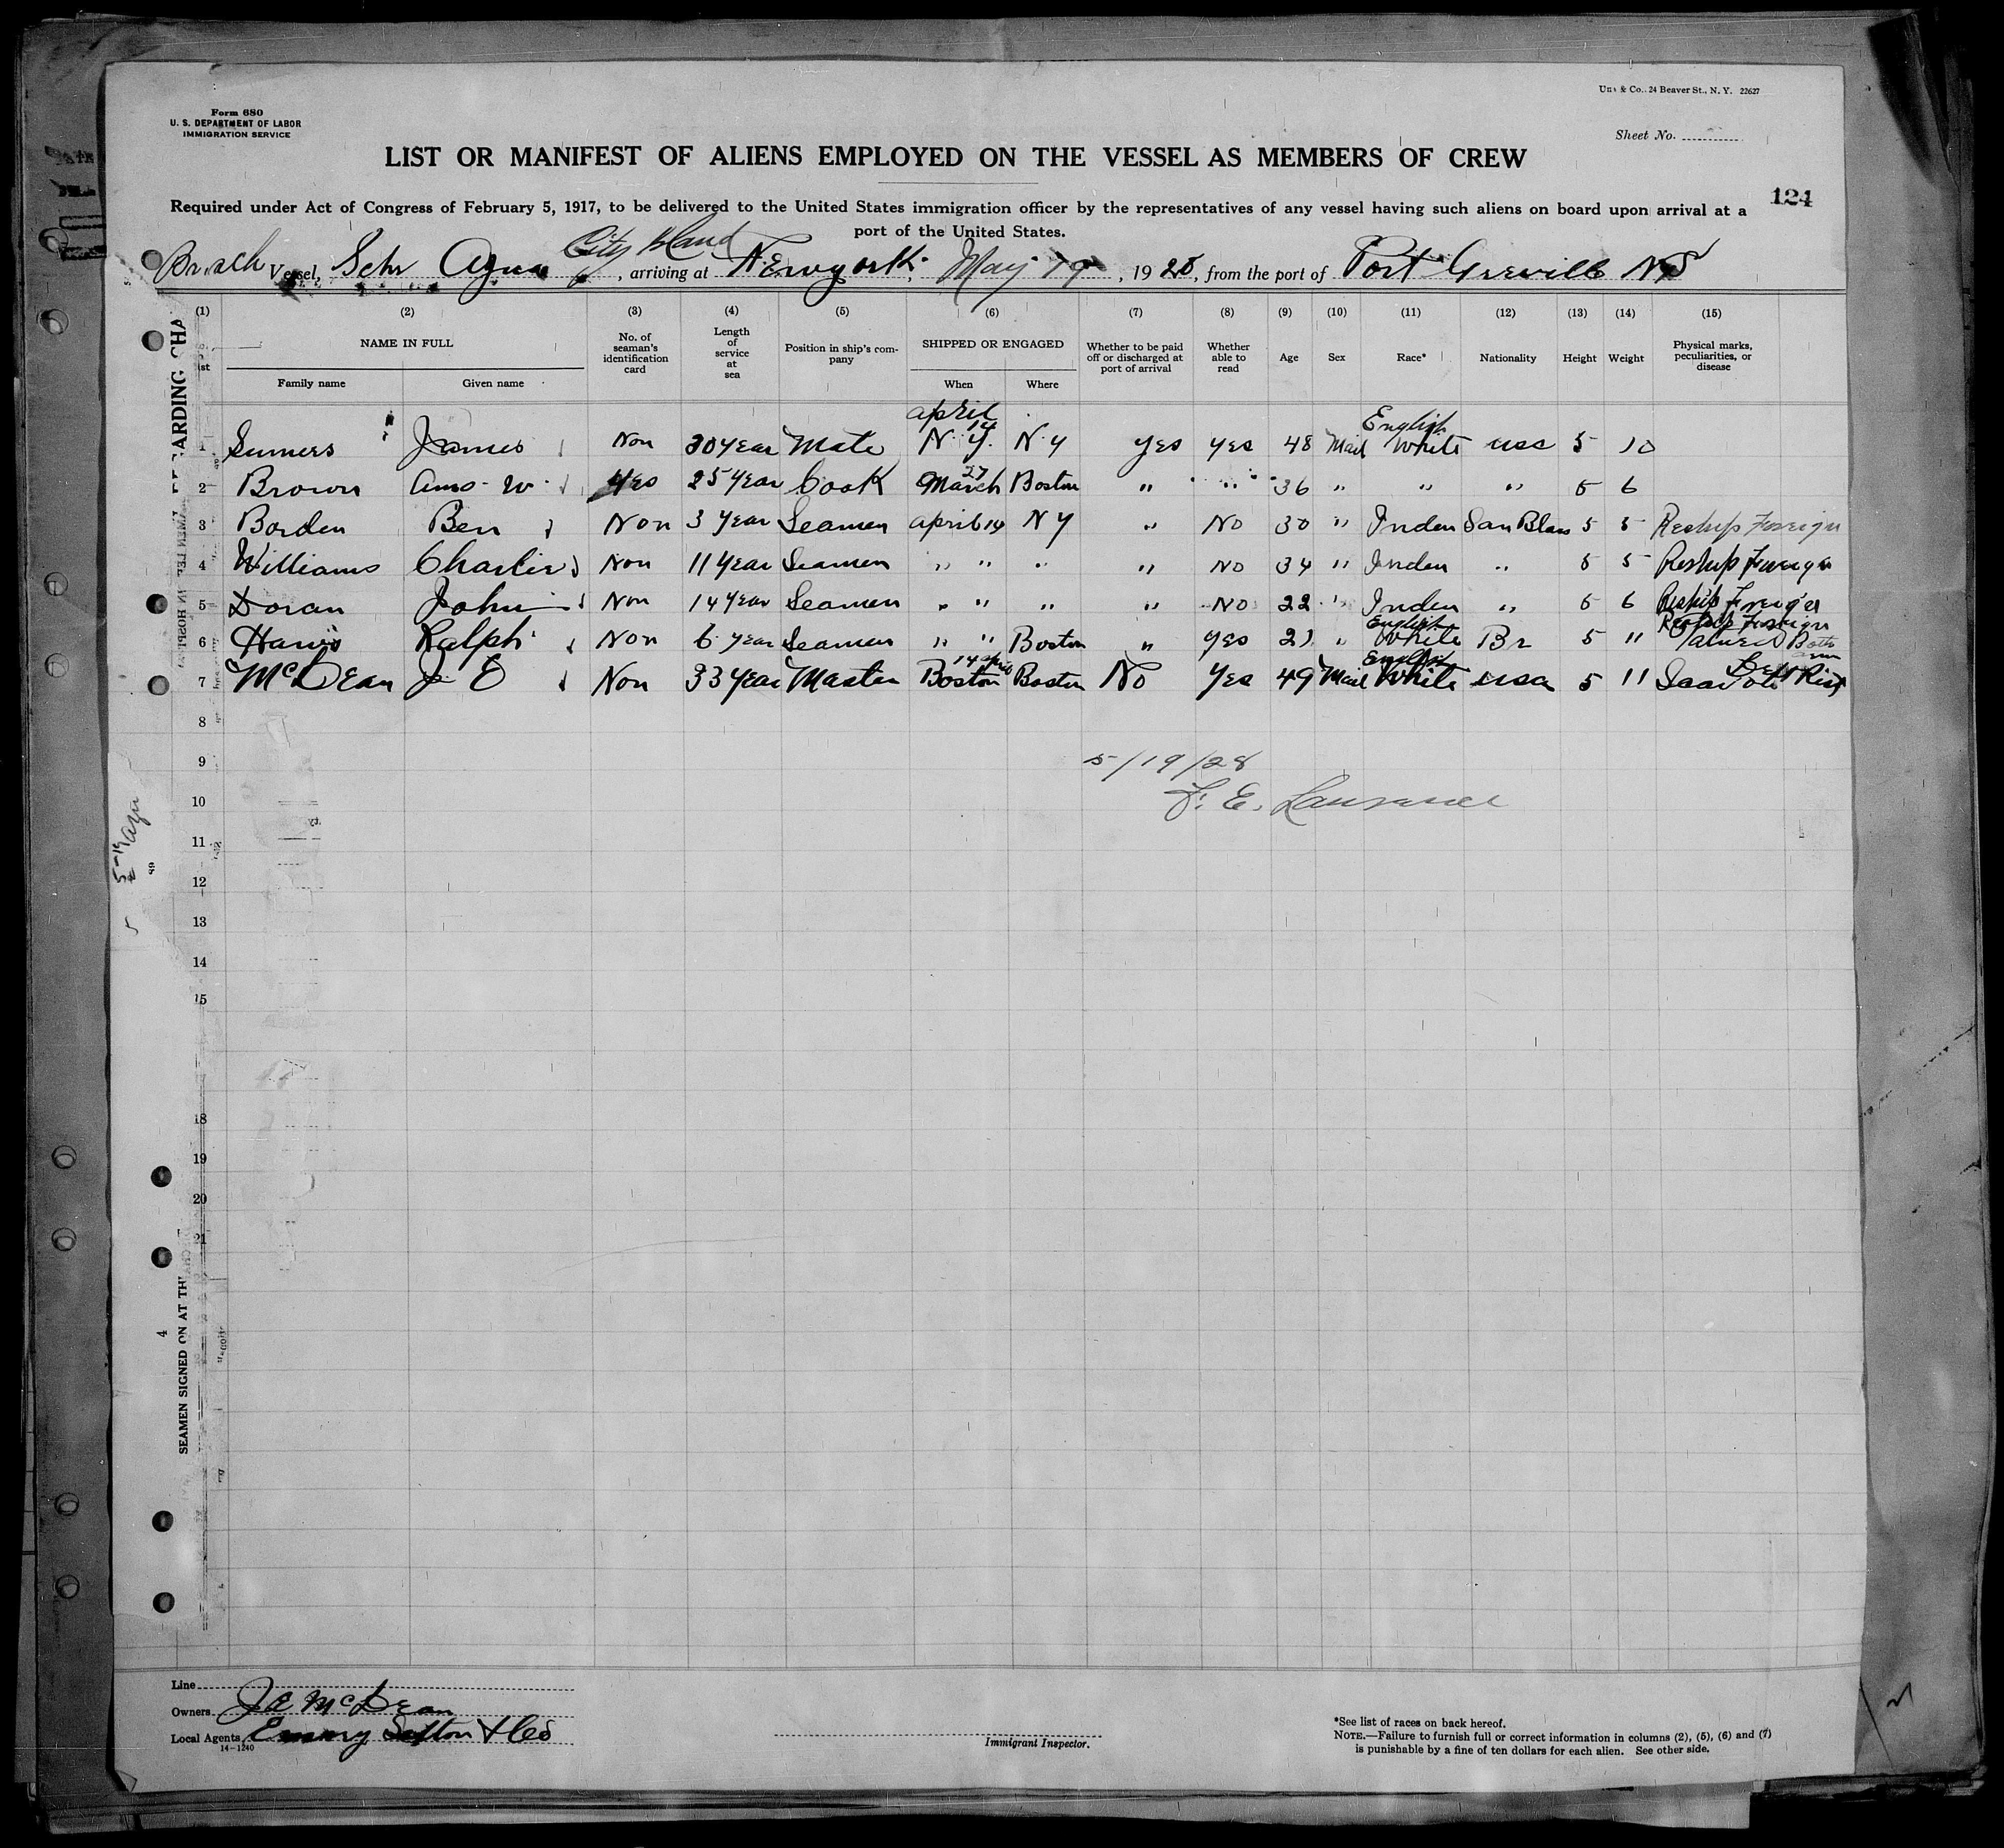 Form 680
U. S. DEPARTMENT OF LABOR
IMMIGRATION SERVICE
& Co., 24 Beaver St., N. Y. 22627
Sheet No.
LIST OR MANIFEST OF ALIENS EMPLOYED ON THE VESSEL AS MEMBERS OF CREW
124
Required under Act of Congress of February 5, 1917, to be delivered to the United States immigration officer by the representatives of any vessel having such aliens on board upon arrival at a
port of the United States.
City Island
Vessel, Schr , arriving at Newyork, May 19, 1928, from the port of Port Grevill NS
(1) (2) (3) (4) (5) (6) (7) (8) (9) (10) (11) (12) (13) (14) (15)
NAME IN FULL
Family name Given name
No. of seaman's identification card
Length of service at sea
Position in ship's company
SHIPPED OR ENGAGED
When Where
Whether to be paid off or discharged at port of arrival
Whether able to read
Age Sex Race* Nationality Height Weight
Physical marks, peculiarities, or disease
april 14 English
1 Sumers James Non 30 year Mate N.Y. N.Y yes yes 48 Mail White usa 5 10
2 Brown Amo W. yes 25 year Cook March 27 Boston " " 36 " " " 5 6
3 Borden Ben Non 3 year Seamen april 14 N Y " No 30 " Inden San Blas 5 5 Reship Foreign
4 Williams Charlie Non 11 year Seamen " " " " No 34 " Inden " 5 5 Reship Foreign
5 Doran John Non 14 year Seamen " " " " No 22 " Inden " 5 6 Reship Foreign
English Reship Foreign
6 Harris Ralph Non 6 year Seamen " " Boston " yes 21 " White Br 5 11
14 april English
7 McDean J E Non 33 year Master Boston Boston No yes 49 Mail White usa 5 11 Scar
8
9
5/19/28
10
F. E. Lawrence
11
12
13
14
15
18
19
20
21
5-19
4
SEAMEN SIGNED ON AT TH
Line
Owners J E McDean
Local Agents Emery Sefton & Co
14-1240
Immigrant Inspector.
*See list of races on back hereof.
NOTE.—Failure to furnish full or correct information in columns (2), (5), (6) and (7)
is punishable by a fine of ten dollars for each alien. See other side.